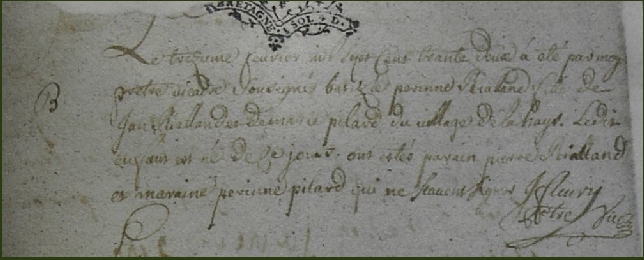 BRETAGNE
SOLS D.
Le treizieme fevrier mil sept cens trente deux a eté par moy
pretre vicaire soussignés batizé perinne Rialland fille de
Jan Riallandet de marie pilard du village de la hays. Ledit
enfant est né de ce jour. ont estés parain pierre Rialland
et maraine perinne pilard qui ne scavent signer J fleury
B
Ptre Vic